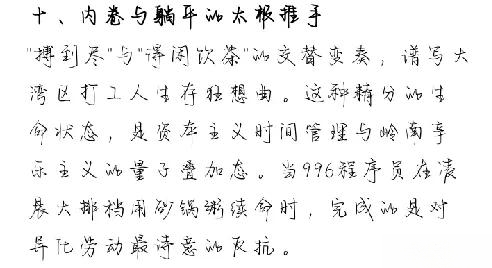 十、内卷与躺平的太极推手
"搏到尽"与"得闲饮茶"的交替变奏，谱写大
湾区打工人生存狂想曲。这种精分的生
命状态，是资本主义时间管理与岭南享
乐主义的量子叠加态。当996程序员在凌
晨大排档用砂锅粥续命时，完成的是对
异化劳动最诗意的反抗。